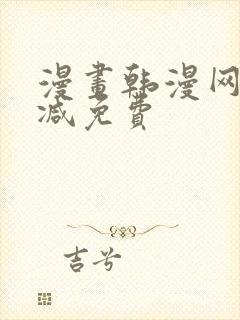 漫畫韩漫网
减免費
吉兮